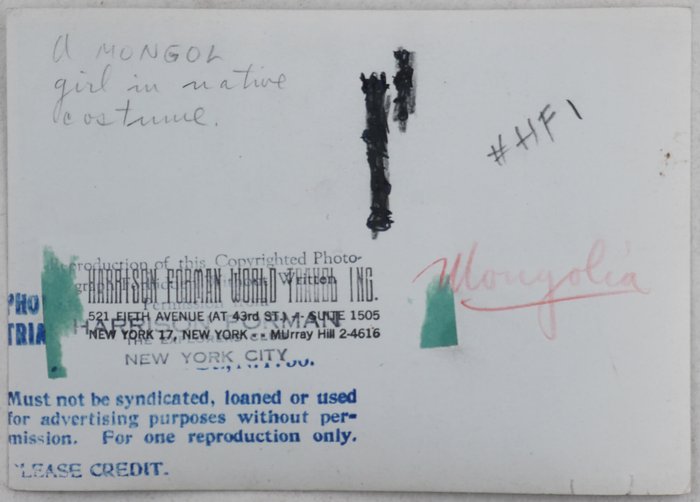 a MONGOL
girl in native
costume.
#HF1
Mongolia
production of this Copyrighted Photo-
Written
HARRISON FORMAN WORLD TRAVEL INC.
521 FIFTH AVENUE (AT 43rd ST.) - SUITE 1505
HARRISON FORMAN
NEW YORK 17, NEW YORK - - MUrray Hill 2-4616
NEW YORK CITY
Must not be syndicated, loaned or used
for advertising purposes without per-
mission. For one reproduction only.
PLEASE CREDIT.